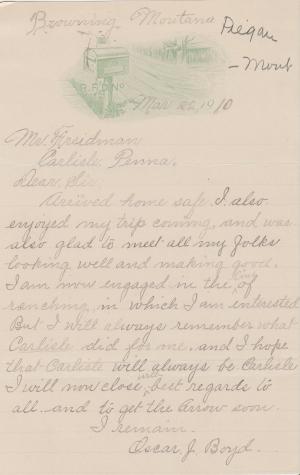 Browning Montana
Piegan
- Mont
R.F.D. No.
Mar 22, 1910
Mr. Friedman
Carlisle, Penna.
Dear Sir:
Arrived home safe. I also
enjoyed my trip coming, and was
also glad to meet all my folks
looking well and making good.
I am now engaged in the line of
ranching, in which I am interested
But I will always remember what
Carlisle did for me. and I hope
that Carlisle will always be Carlisle
I will now close, with best regards to
all and to get the Arrow soon.
I remain.
Oscar J. Boyd.